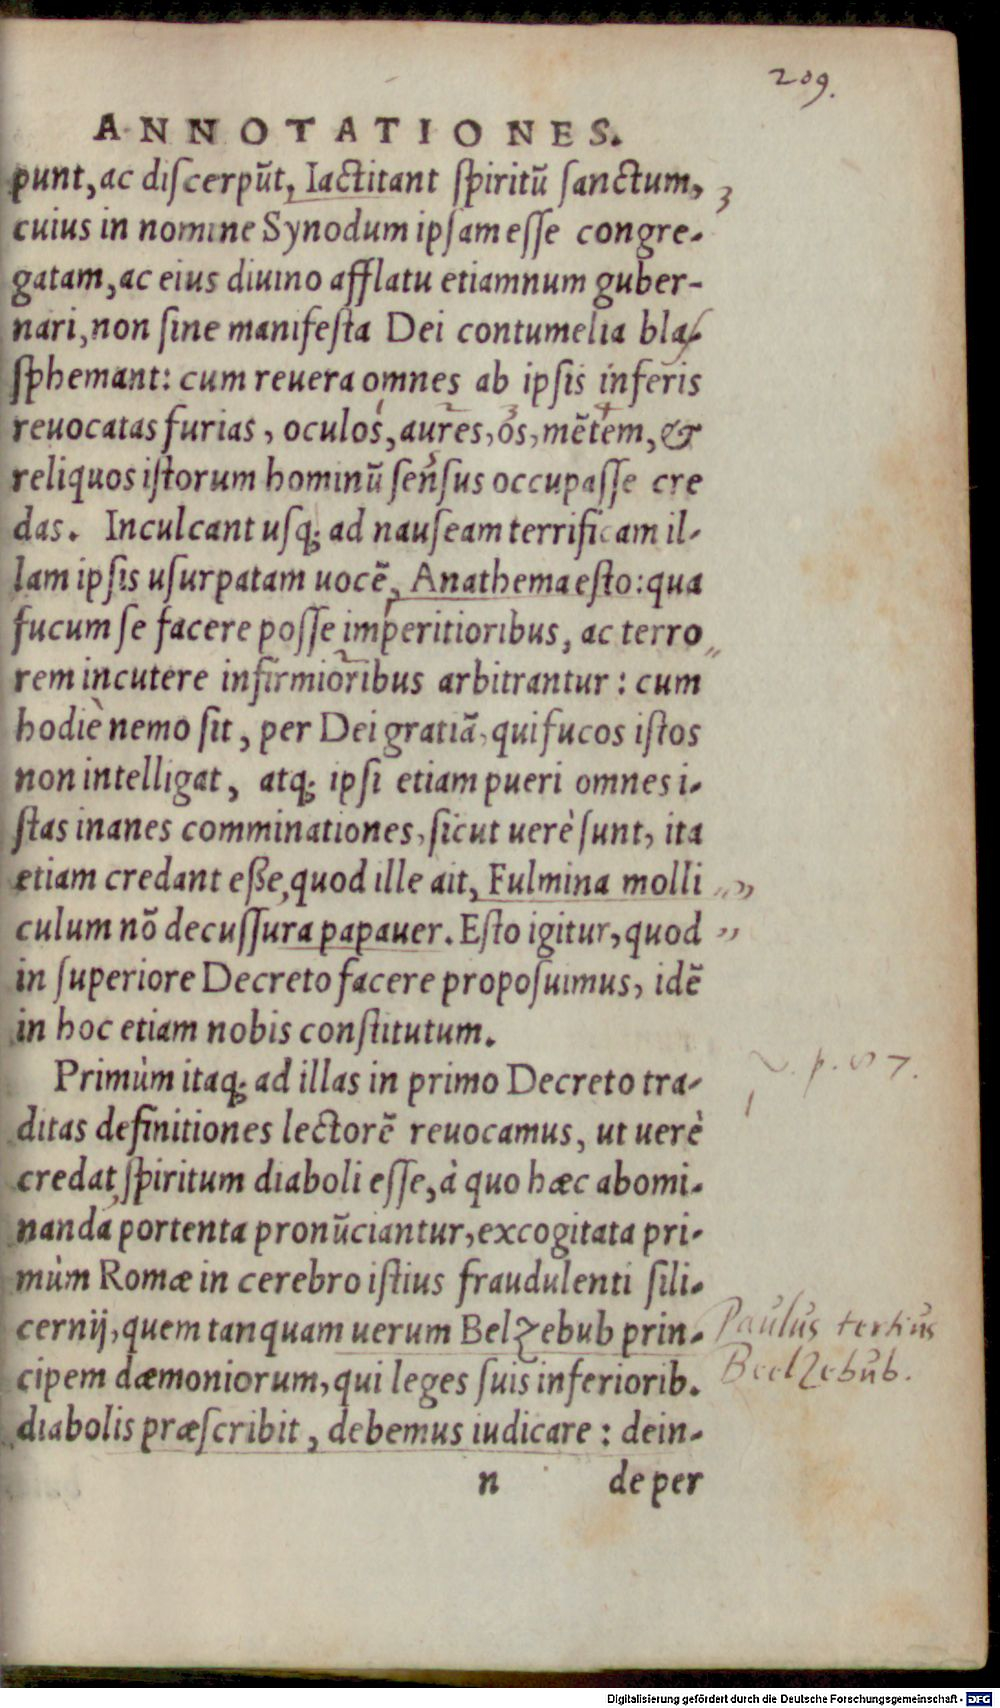 209.
ANNOTATIONES.
punt, ac discerpūt, Iactitant spiritū sanctum, 3
cuius in nomine Synodum ipsam esse congre-
gatam, ac eius diuino afflatu etiamnum guber-
nari, non sine manifesta Dei contumelia bla-
sphemant: cum reuera omnes ab ipsis inferis
reuocatas furias, oculos, aures, os, mētem, &
reliquos istorum hominū sensus occupasse cre
das. Inculcant usq; ad nauseam terrificam il-
lam ipsis usurpatam uocē, Anathema esto: qua
fucum se facere posse imperitioribus, ac terro
rem incutere infirmioribus arbitrantur: cum
hodiè nemo sit, per Dei gratiā, qui fucos istos
non intelligat, atq; ipsi etiam pueri omnes i-
stas inanes comminationes, sicut uerè sunt, ita
etiam credant eße, quod ille ait, Fulmina molli
culum nō decussura papauer. Esto igitur, quod
in superiore Decreto facere proposuimus, idē
in hoc etiam nobis constitutum.
Primùm itaq; ad illas in primo Decreto tra-
ditas definitiones lectorē reuocamus, ut uerè
credat, spiritum diaboli esse, à quo hæc abomi-
nanda portenta pronūciantur, excogitata pri-
mùm Romæ in cerebro istius fraudulenti sili-
cernij, quem tanquam uerum Belzebub prin-
Paulus tertius
Beelzebub.
cipem dæmoniorum, qui leges suis inferiorib.
diabolis præscribit, debemus iudicare: dein-
n de per
Digitalisierung gefördert durch die Deutsche Forschungsgemeinschaft - DFG